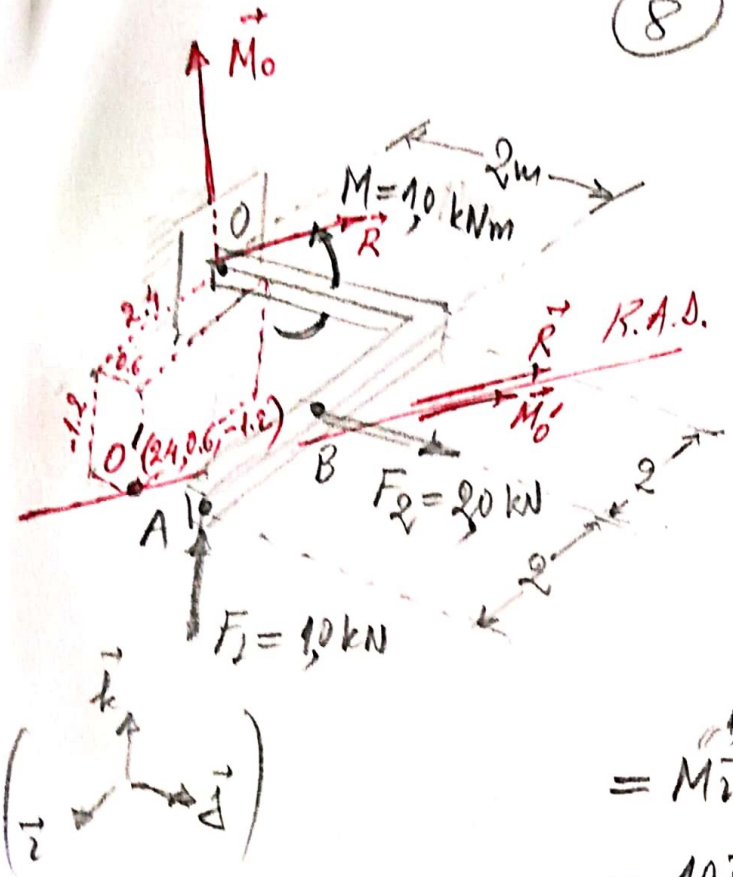 8
M⃗o
2m
M=1,0 kNm
O
R⃗
2.4
0.6
-1.2
R⃗
R.A.D.
M⃗o'
O'(2.4,0.6,-1.2)
B
F₂=2,0 kN
2
2
A
F₁=1,0 kN
k⃗
i⃗
j⃗
= Mi⃗